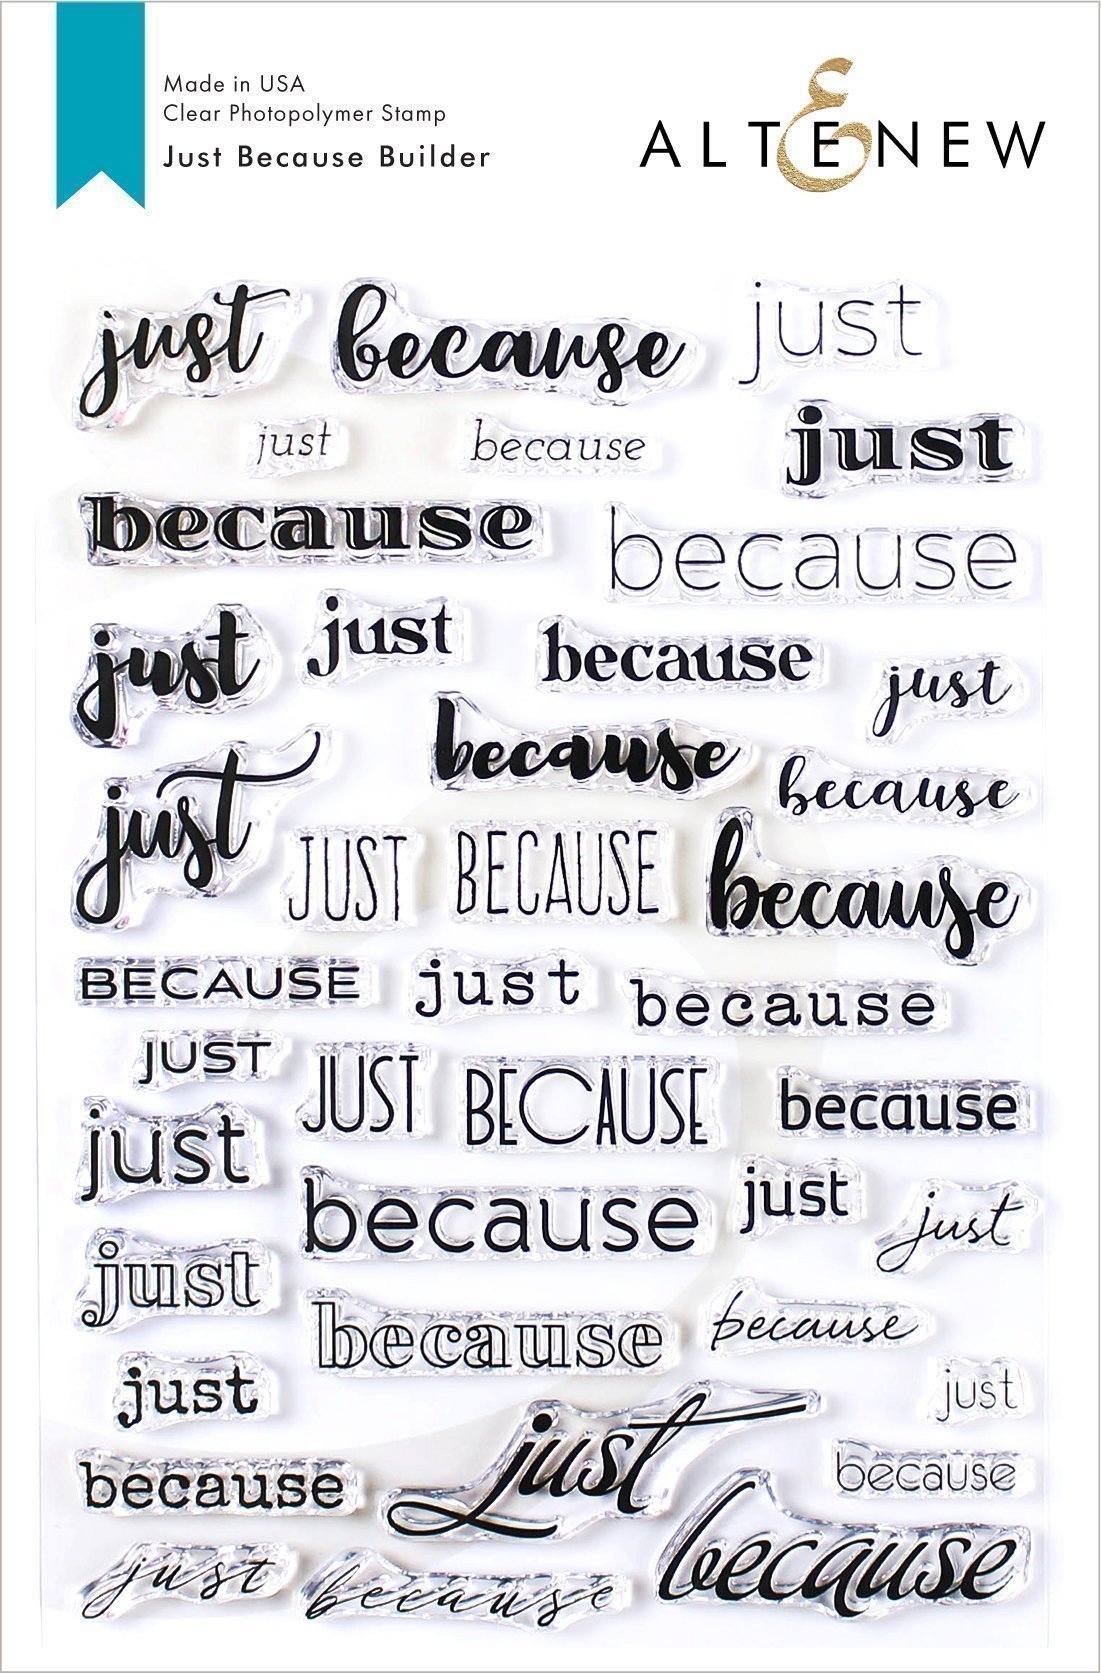 Made in USA
Clear Photopolymer Stamp
Just Because Builder
ALTENEW
just because just
just because just
because because
just just because just
just because because
JUST BECAUSE because
BECAUSE just because
JUST JUST BECAUSE because
just because just just
just because because
just just just
because because
just because because